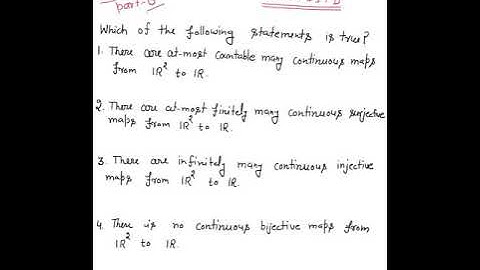 part-B
Which of the following statements is true?
1. There are at-most countable many continuous maps
from IR² to IR.
2. There are at-most finitely many continuous surjective
maps from IR² to IR.
3. There are infinitely many continuous injective
maps from IR² to IR.
4. There is no continuous bijective maps from
IR² to IR.